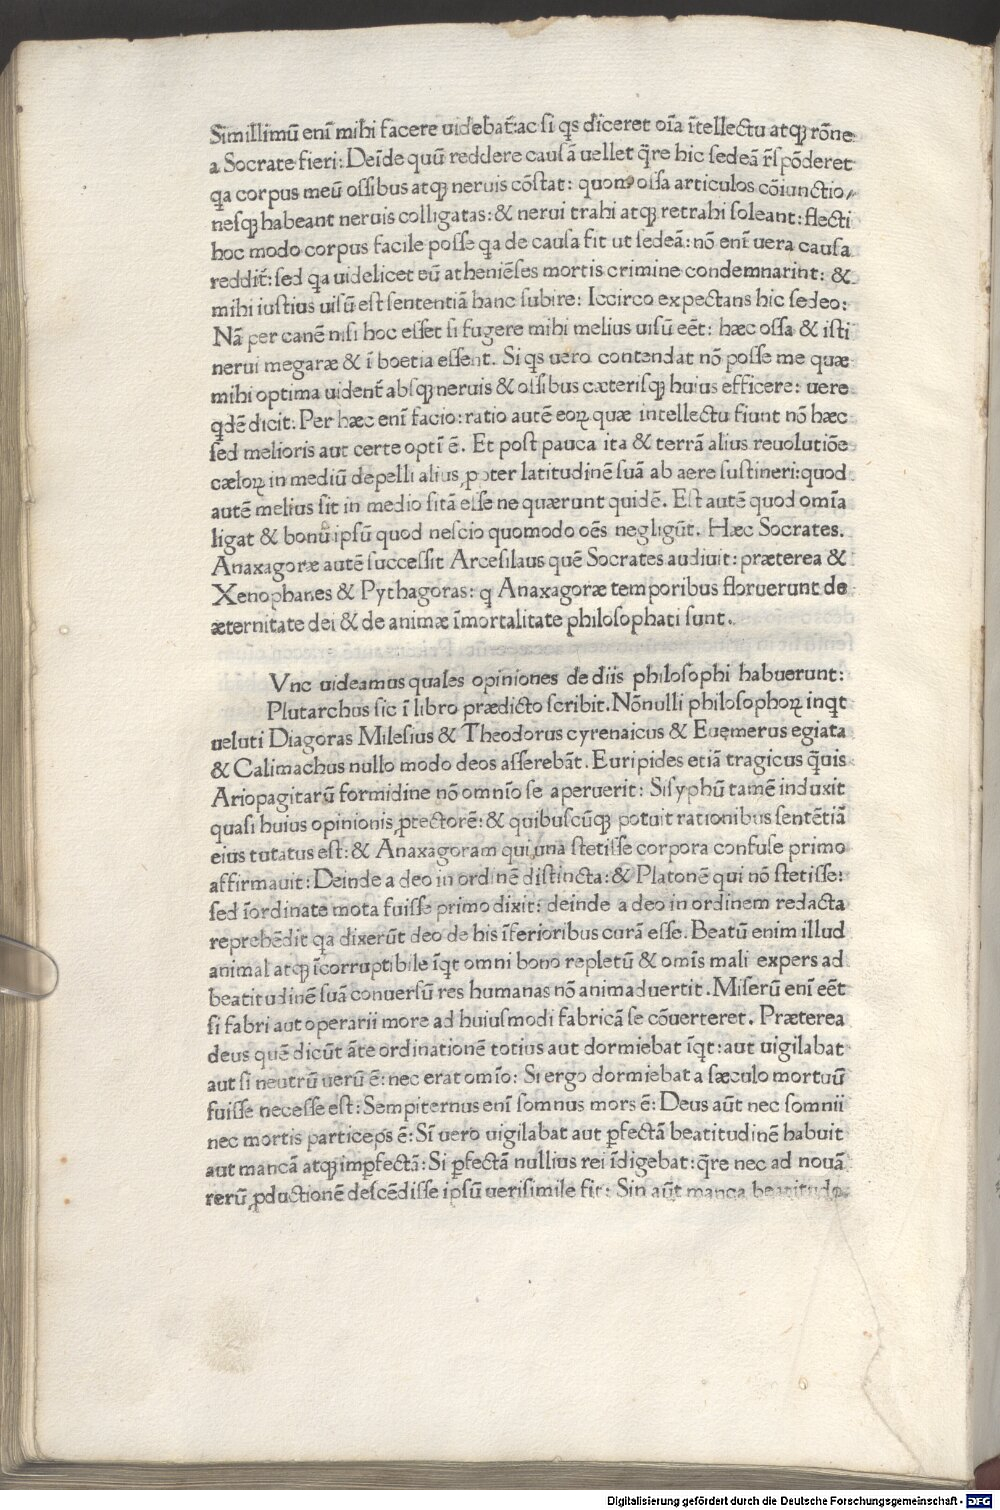 Simillimū enī mihi facere uidebat̄: ac si q̄s diceret oīa ītellectu atqȝ rōne
a Socrate fieri: Deīde quū reddere causā uellet q̄re hic sedeā r̄spōderet
q̄a corpus meū ossibus atqȝ neruis cōstat: quom ossa articulos cōiunctio⸗
nesqȝ habeant neruis colligatas: & nerui trahi atqȝ retrahi soleant: flecti
hoc modo corpus facile posse q̄a de causa fit ut sedeā: nō enī uera causa
reddit̄: sed q̄a uidelicet eū atheniēses mortis crimine condemnarint: &
mihi iustius uisū est sententiā hanc subire: Iccirco expectans hic sedeo:
Nā per canē nisi hoc esset si fugere mihi melius uisū eēt: hæc ossa & isti
nerui megaræ & ī boetia essent. Si q̄s uero contendat nō posse me quæ
mihi optima uident̄ absqȝ neruis & ossibus cæterisqȝ huius efficere: uere
q̄dē dicit. Per hæc enī facio: ratio autē eoꝝ quæ intellectu fiunt nō hæc
sed melioris aut certe optī ē. Et post pauca ita & terrā alius reuolutiōe
cæloꝝ in mediū depelli alius ꝓpter latitudinē suā ab aere sustineri: quod
autē melius sit in medio sitā esse ne quærunt quidē. Est autē quod omīa
ligat & bonū ipsū quod nescio quomodo oēs negligūt. Hæc Socrates.
Anaxagoræ autē successit Arcesilaus quē Socrates audiuit: præterea &
Xenophanes & Pythagoras: q Anaxagoræ temporibus floruerunt de
æternitate dei & de animæ īmortalitate philosophati sunt.
Vnc uideamus quales opiniones de diis philosophi habuerunt:
Plutarchus sic ī libro prædicto scribit. Nōnulli philosophoꝝ inq̄t
ueluti Diagoras Milesius & Theodorus cyrenaicus & Euęmerus egiata
& Calimachus nullo modo deos asserebāt. Euripides etiā tragicus q̄uis
Ariopagitarū formidine nō omnīo se aperuerit: Sisyphū tamē induxit
quasi huius opinionis ꝓtectorē: & quibuscūqȝ potuit rationibus sentētiā
eius tutatus est: & Anaxagoram qui una stetisse corpora confuse primo
affirmauit: Deinde a deo in ordinē distincta: & Platonē qui nō stetisse:
sed īordinate mota fuisse primo dixit: deinde a deo in ordinem redacta
reprehēdit q̄a dixerūt deo de his īferioribus curā esse. Beatū enim illud
animal atqȝ īcorruptibile īq̄t omni bono repletū & omīs mali expers ad
beatitudinē suā conuersū res humanas nō animaduertit. Miserū enī eēt
si fabri aut operarii more ad huiusmodi fabricā se cōuerteret. Præterea
deus quē dicūt āte ordinationē totius aut dormiebat īq̄t: aut uigilabat
aut si neutrū uerū ē: nec erat omīo: Si ergo dormiebat a sæculo mortuū
fuisse necesse est: Sempiternus enī somnus mors ē: Deus aūt nec somnii
nec mortis particeps ē: Sī uero uigilabat aut ꝑfectā beatitudinē habuit
aut mancā atqȝ imꝑfectā: Si ꝑfectā nullius rei īdigebat: q̄re nec ad nouā
rerū ꝓductionē descēdisse ipsū uerisimile fit: Sin aūt manca beatitudo
Digitalisierung gefördert durch die Deutsche Forschungsgemeinschaft - DFG